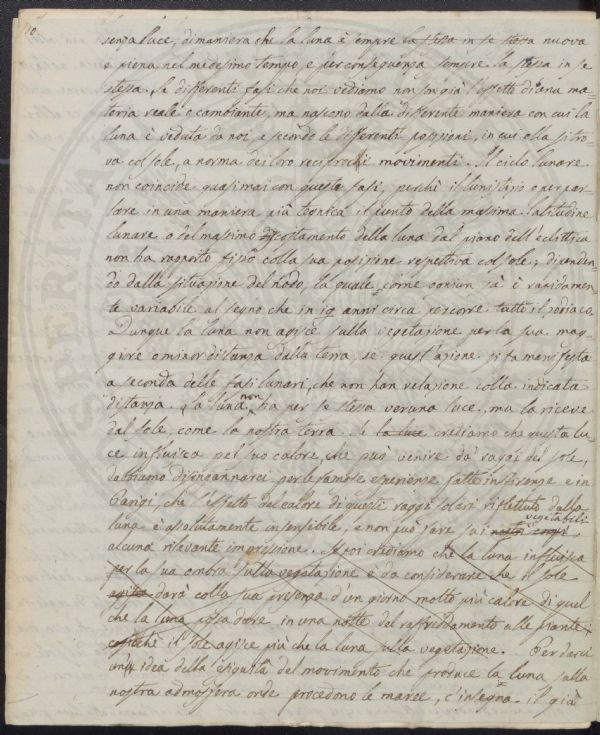 10.
senza luce, di maniera che la luna è sempre la stessa in se stessa nuova
e piena nel medesimo tempo, e per conseguenza sempre la stessa in se
stessa, le differenti fasi che noi vediamo non son già l'effetto di una ma-
teria reale e cambiante, ma nascono dalla differente maniera con cui la
luna è veduta da noi, e secondo le differenti posizioni, in cui ella si tro-
va col sole, a norma dei loro reciprochi movimenti. Il ciclo lunare
non coincide quasi mai con queste fasi, perchè il lunistizio o per par-
lare in una maniera più tecnica il punto della massima latitudine
lunare o del massimo discostamento della luna dal piano dell'eclittica
non ha rapporto fisso colla sua posizione respettiva col sole, dipenden-
do dalla situazione del nodo, la quale, come ognun sà è rapidamen-
te variabile al segno che in 19 anni circa percorre tutto il zodiaco.
Dunque la luna non agisce sulla vegetazione per la sua mag-
giore o minor distanza dalla terra, se quest'azione si fa manifesta
a seconda delle fasi lunari, che non han relazione colla indicata
distanza. La luna non ha per se stessa veruna luce, ma la riceve
dal sole, come la nostra terra. Se la luce crediamo che questa lu-
ce influisca pel suo calore, che può venire da' raggi del sole,
dobbiamo disingannarci per le famose esperienze fatte in Firenze e in
Parigi, che l'effetto del calore di questi raggi solari riflettuto dalla
luna è assolutamente insensibile, e non può fare sui vegetabili
alcuna rilevante impressione. Se poi crediamo che la luna influisca
per la sua ombra sulla vegetazione è da considerare che il sole
agita darà colla sua presenza d'un giorno molto più calore di quel
che la luna possa dare in una notte del raffreddamento alle piante;
cosichè il sole agisce più che la luna sulla vegetazione. Per darvi
un'idea della esiguità del movimento che produce la luna sulla
nostra admosfera onde procedono le maree, c'insegna il già